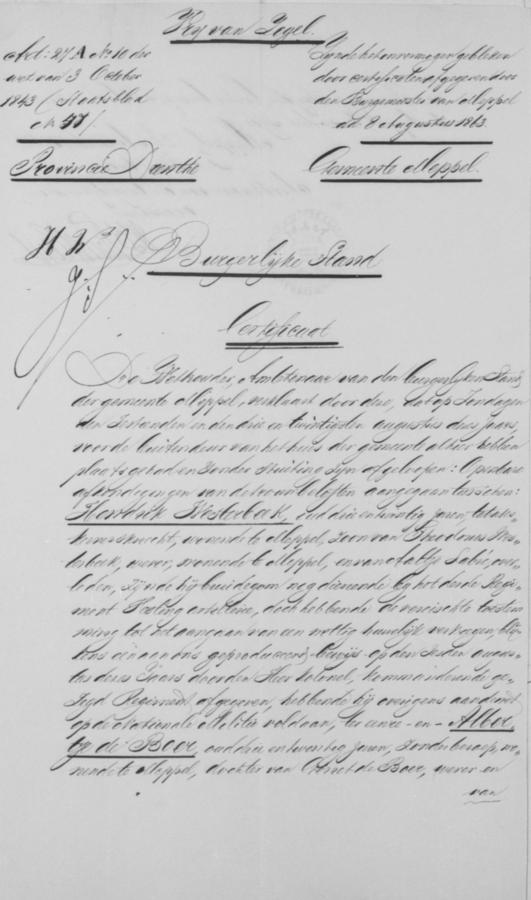 Vrij van Zegel.
Art: 27 A No 10 der
wet van 3 October
1843 (Staatsblad
No 47/
Zijnde het onvermogen gebleken
door certificaten afgegeven door
den Burgemeester van Meppel
dd 8 Augustus 1863.
Provincie Drenthe
Gemeente Meppel.
Burgerlijke Stand
Certificaat
De Wethouder, Ambtenaar van den burgerlijken Stand
der gemeente Meppel, verklaart door deze, dat op Zondagen
den Zestienden en den drie en twintigsten augustus dezes jaars,
voor de buitendeur van het huis der gemeente alhier hebben
plaats gehad en zonder stuiting zijn afgeloopen: Openbare
afkondigingen van de trouwbeloften aangegaan tusschen:
Hendrik Westerbeek, oud drie en twintig jaren, tabaks-
kerversknecht, wonende te Meppel, zoon van Theodorus Wes-
terbeek, wever, wonende te Meppel, en van Aaltje, over-
leden, zijnde hij bruidegom nog dienende bij het derde Regi-
ment Vesting artillerie, doch hebbende de vereischte toestem-
ming tot het aangaan van een wettig huwelijk verkregen, blij-
kens een aan ons geproduceerd bewijs op den augus-
tus dezes Jaars door den Heer kolonel, kommanderende ge-
zegd Regiment, afgegeven, hebbende hij overigens aan
op de Nationale Militie voldaan, ter eenre - en - Alber-
tje de Boer, oud drie en twintig jaren, zonder beroep, wo-
nende te Meppel, dochter van de Boer, wever en
van